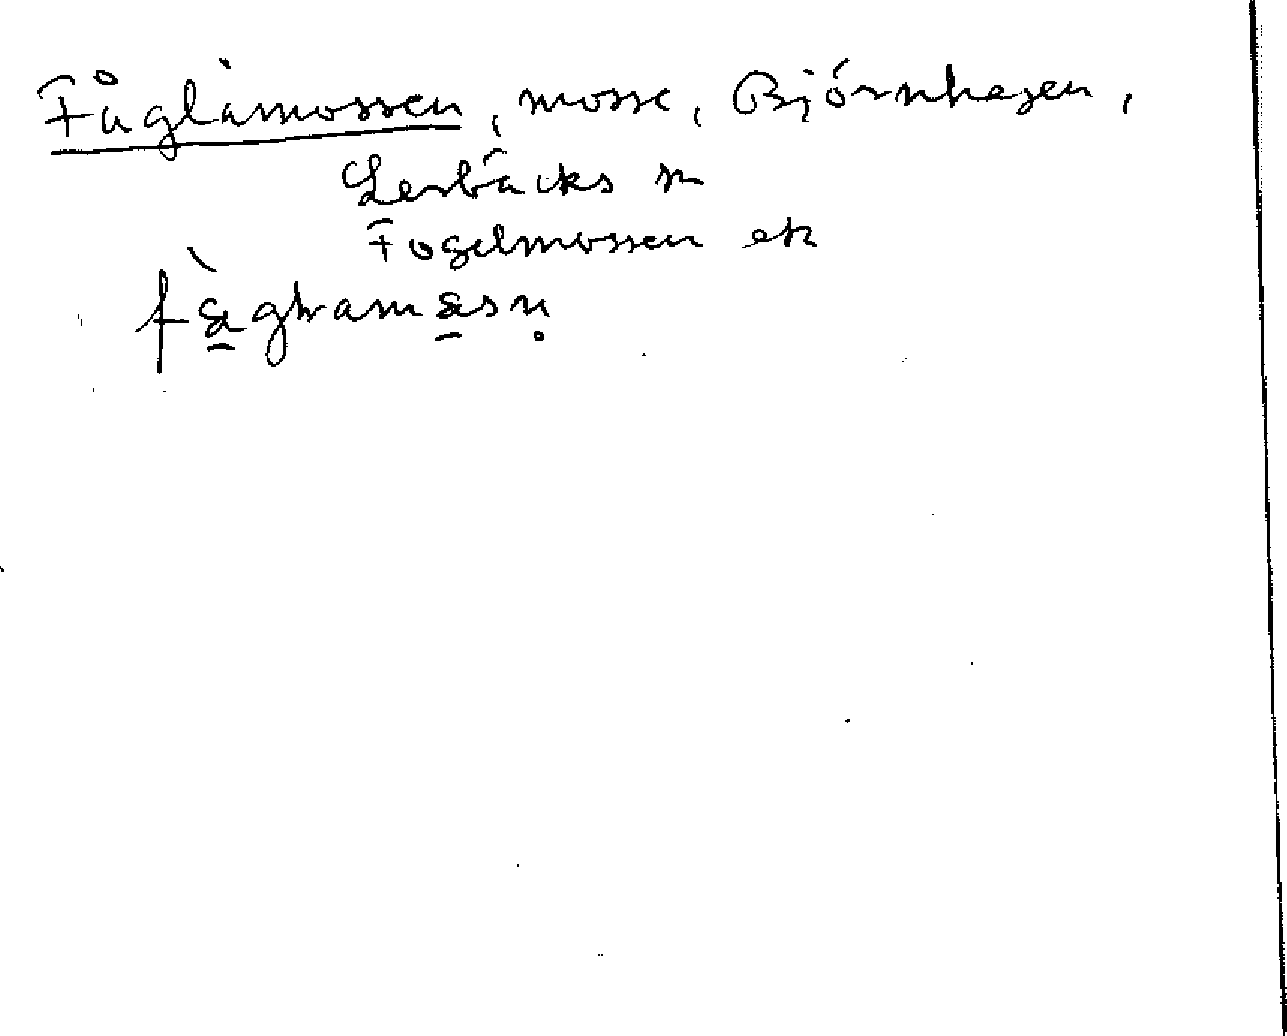 Fåglamossen, mosse, Björnhagen,
Lerbäcks sn
Fogelmossen ek